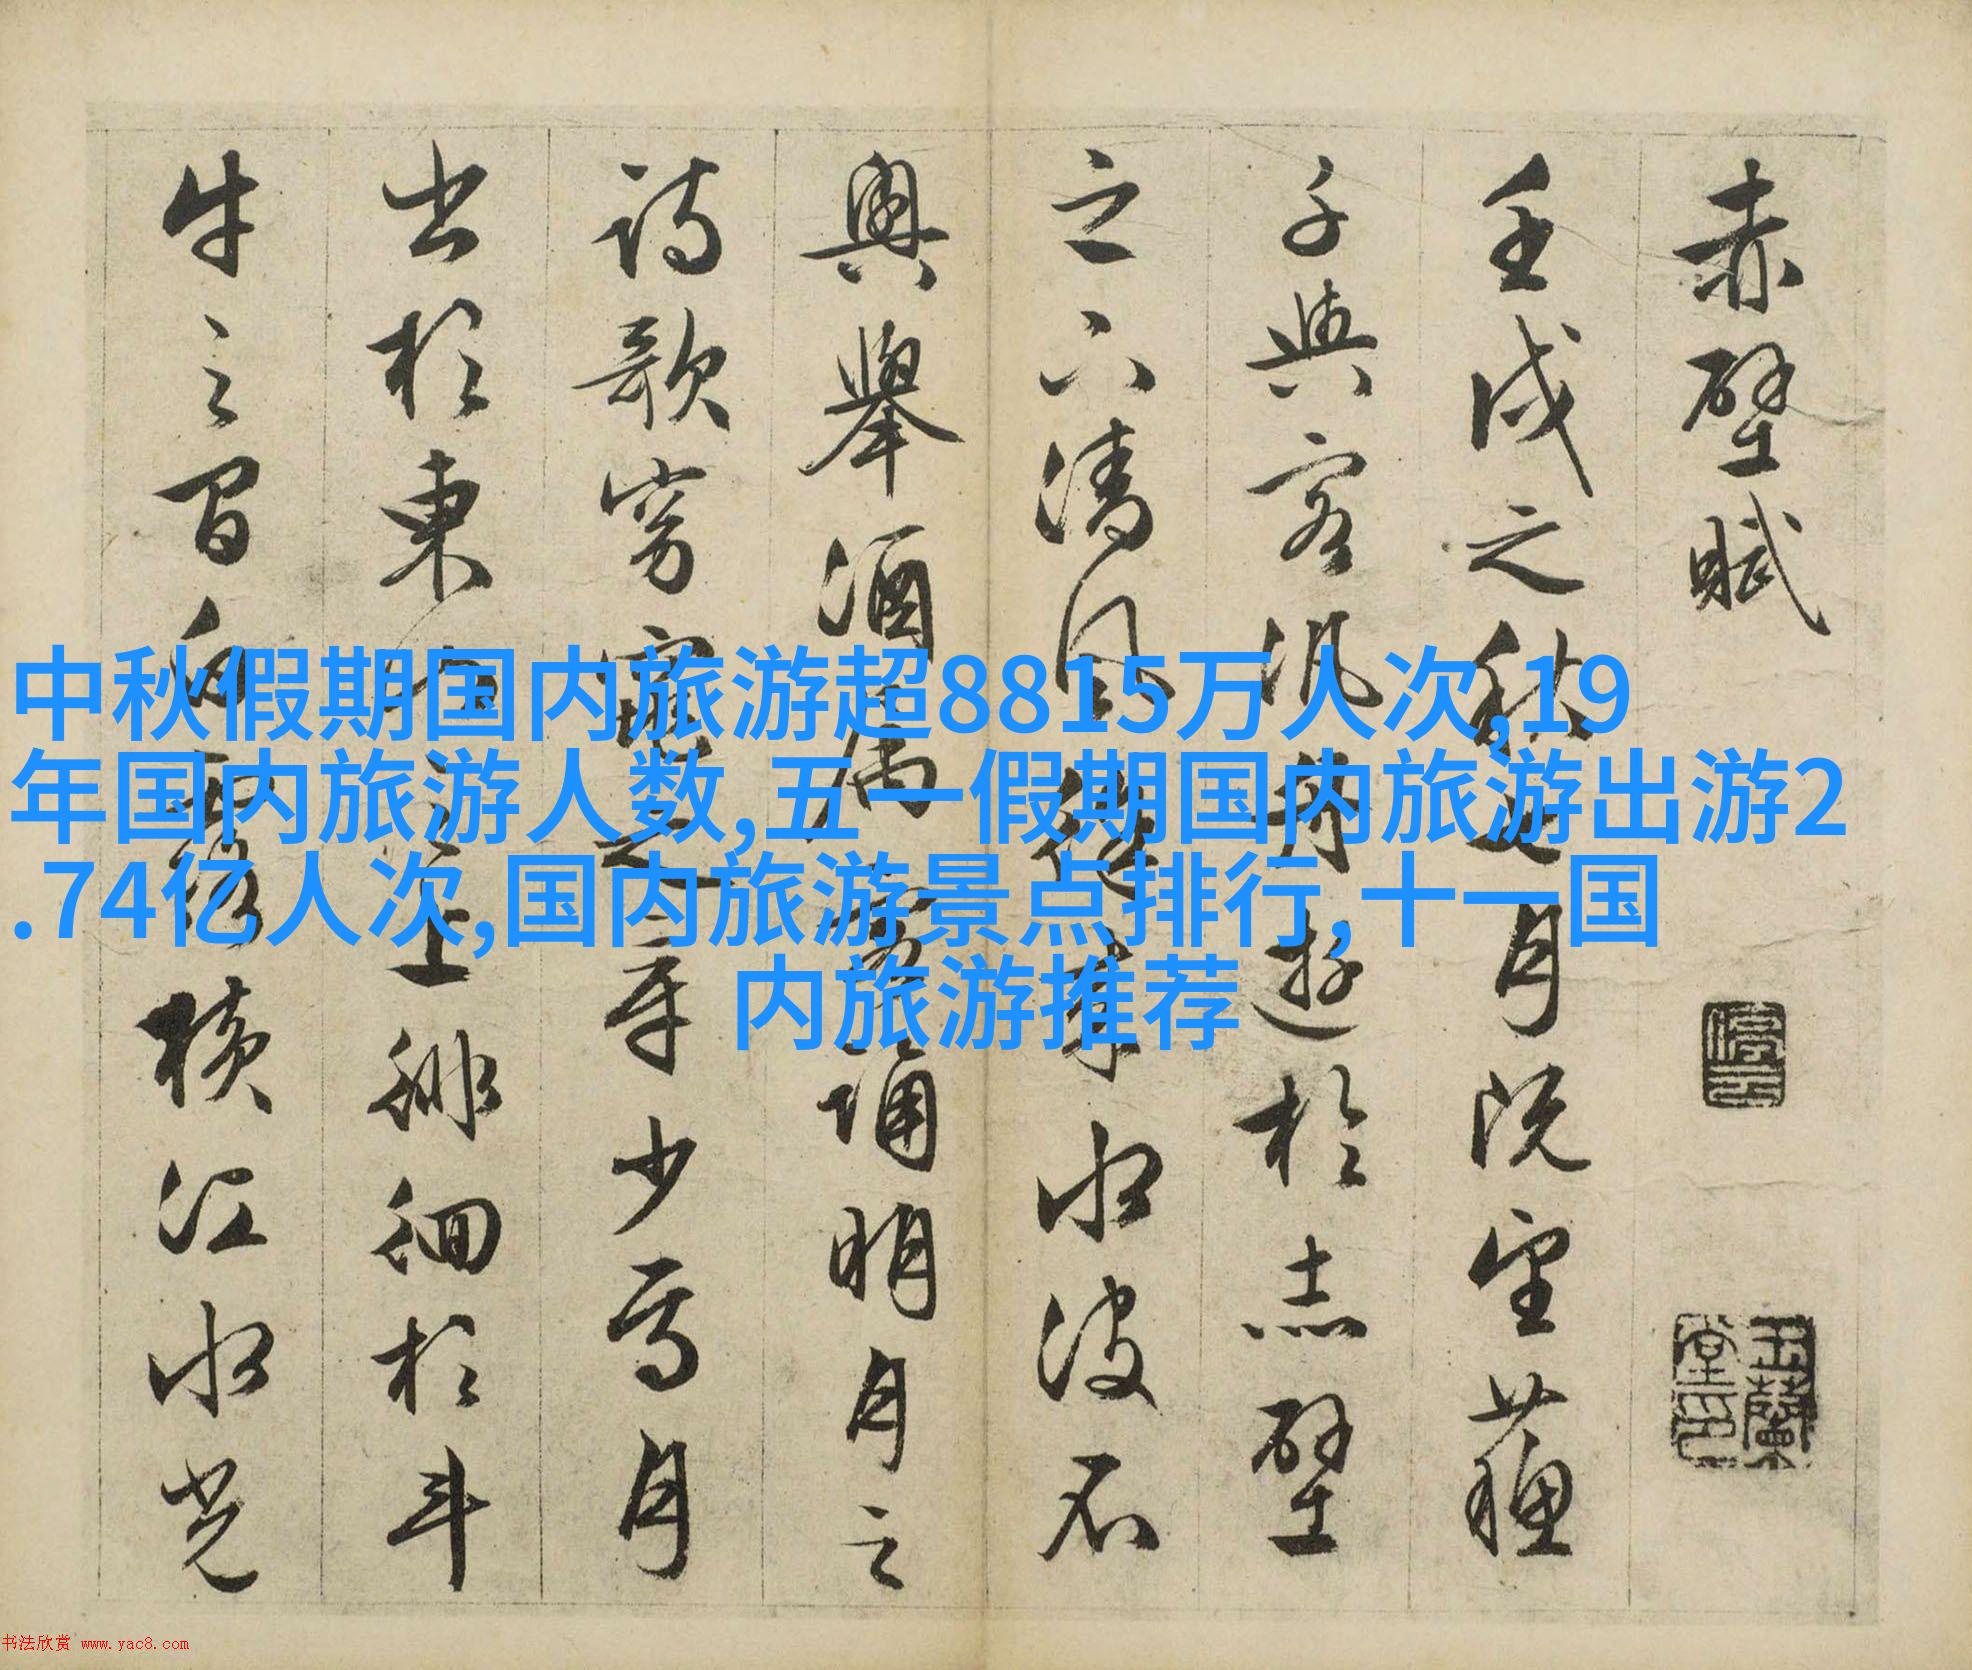 赤壁賦
停雲
玉蘭堂印
壬戌之秋七月既望蘇
子與客汎舟遊於赤壁
之下清風徐來水波不
興舉酒屬客誦明月之
詩歌窈窕之章少焉月
出於東山之上徘徊於斗
牛之間白露橫江水光
中秋假期国内旅游超8815万人次,19
年国内旅游人数,五一假期国内旅游出游2
.74亿人次,国内旅游景点排行,十一国
内旅游推荐
书法欣赏 www.yac8.com